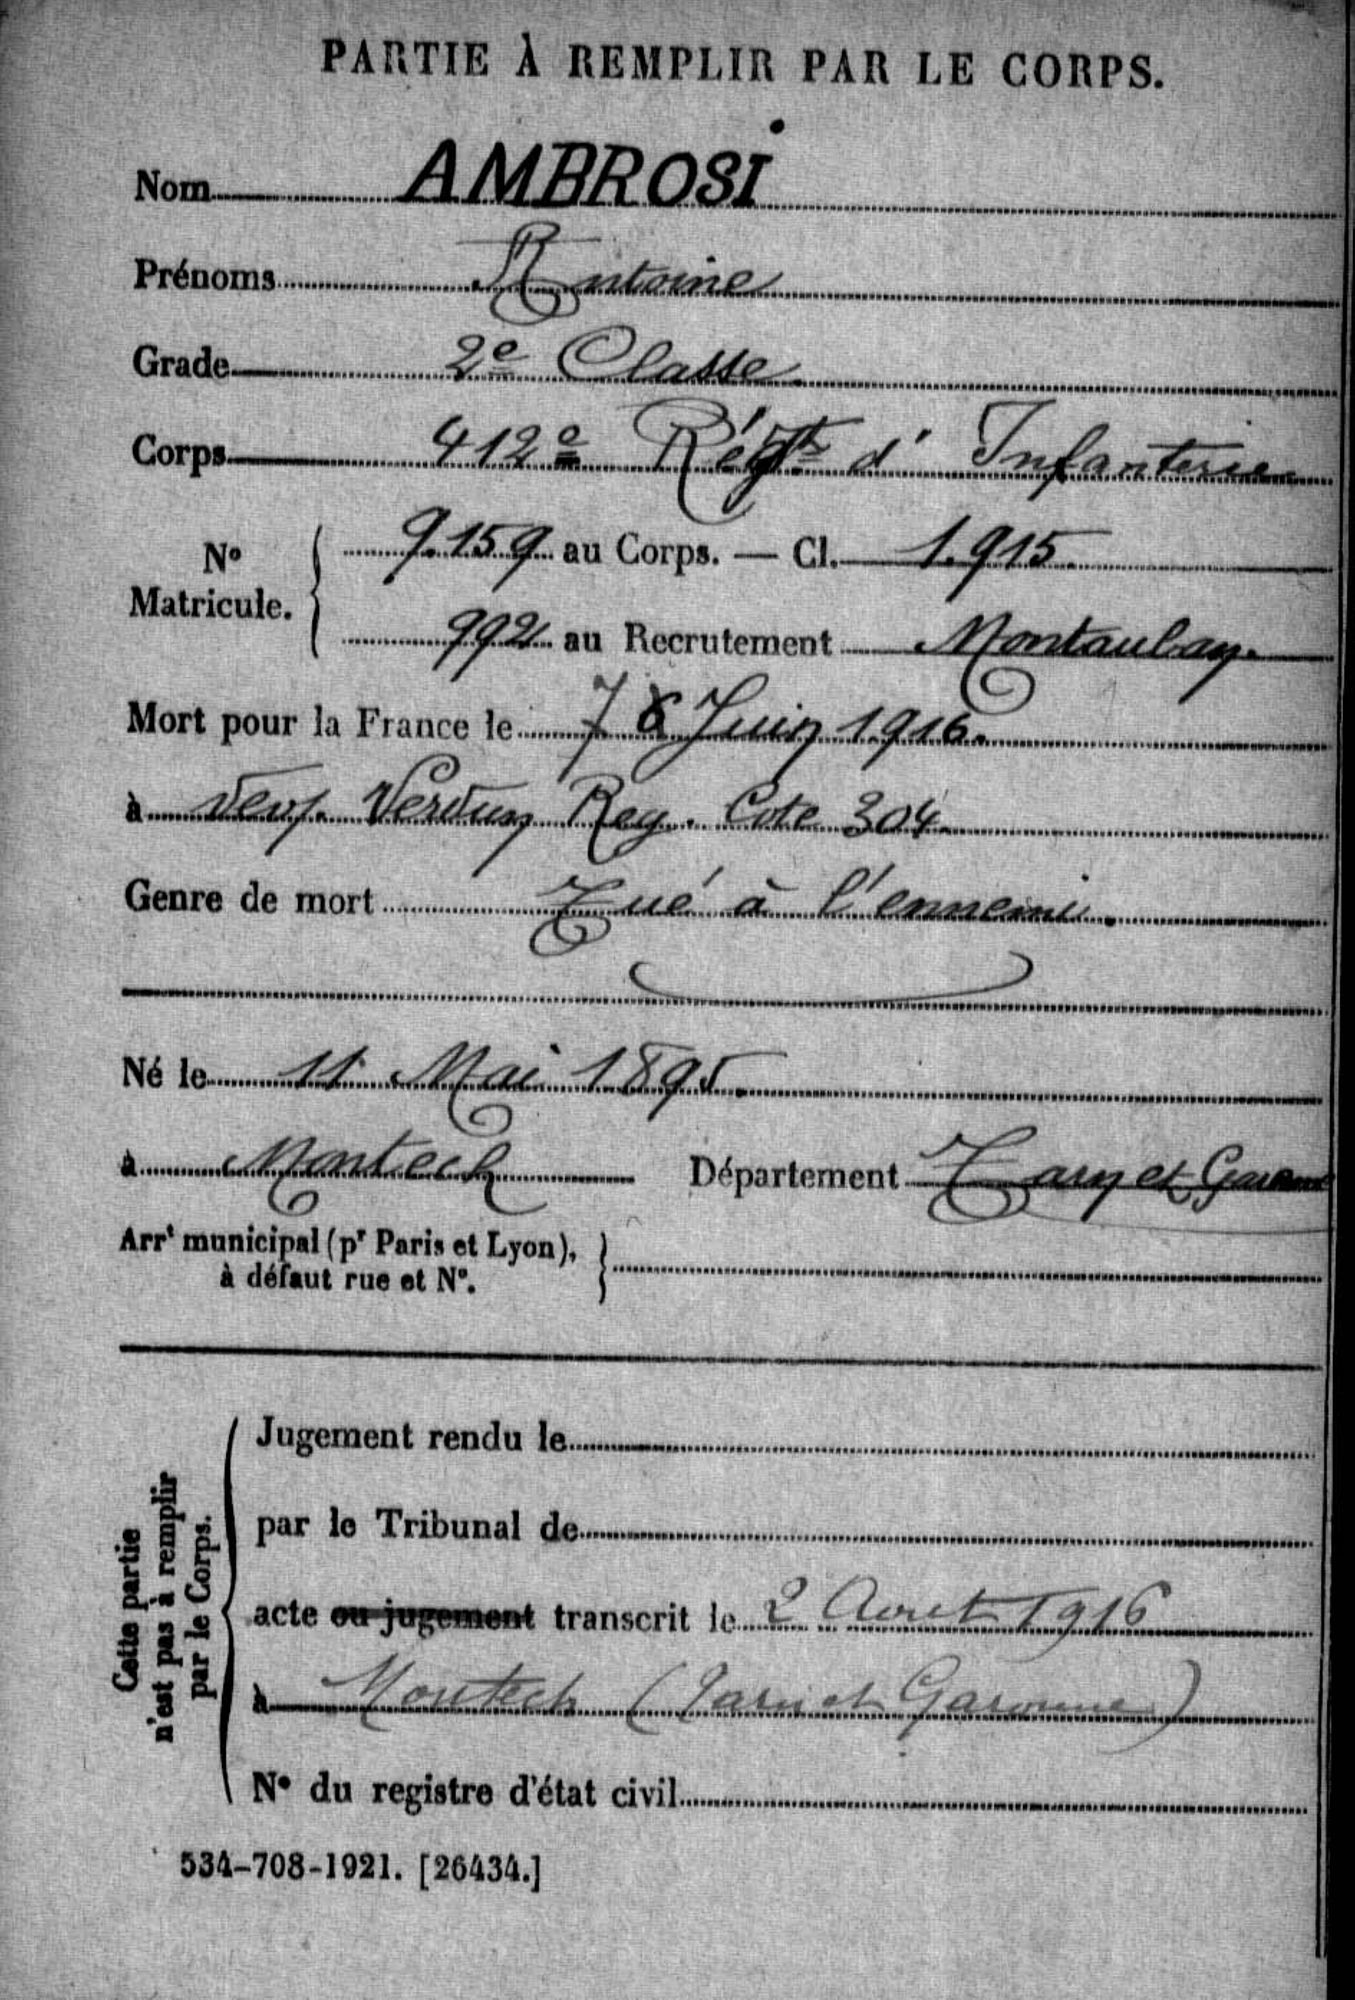 PARTIE À REMPLIR PAR LE CORPS.
Nom AMBROSI
Prénoms Antoine
Grade 2e Classe.
Corps 412e Régt d'Infanterie
No Matricule. { 9.159 au Corps. — Cl. 1.915.
992 au Recrutement Montauban.
Mort pour la France le 7 8 Juin 1916.
à Verdun Reg. Cote 304.
Genre de mort Tué à l'ennemi.
Né le 11 Mai 1895.
à Montech Département Tarn et Garonne
Arrt municipal (pr Paris et Lyon),
à défaut rue et No.
Cette partie
n'est pas à remplir
par le Corps.
Jugement rendu le
par le Tribunal de
acte ou jugement transcrit le 2 Aout 1916
à Montech (Tarn et Garonne)
No du registre d'état civil
534-708-1921. [26434.]